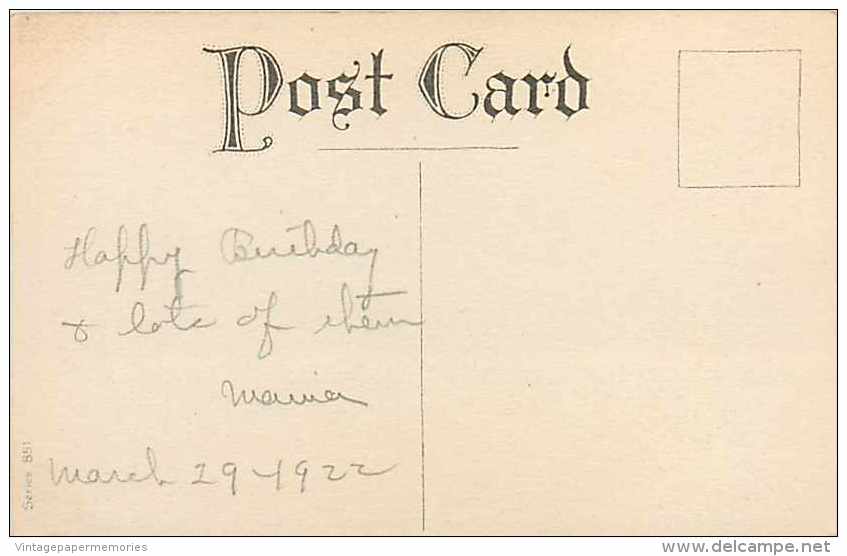 Post Card
Happy Birthday
& lots of them
March 29-1922
Series 851
Vintagepapermemories
www.delcampe.net